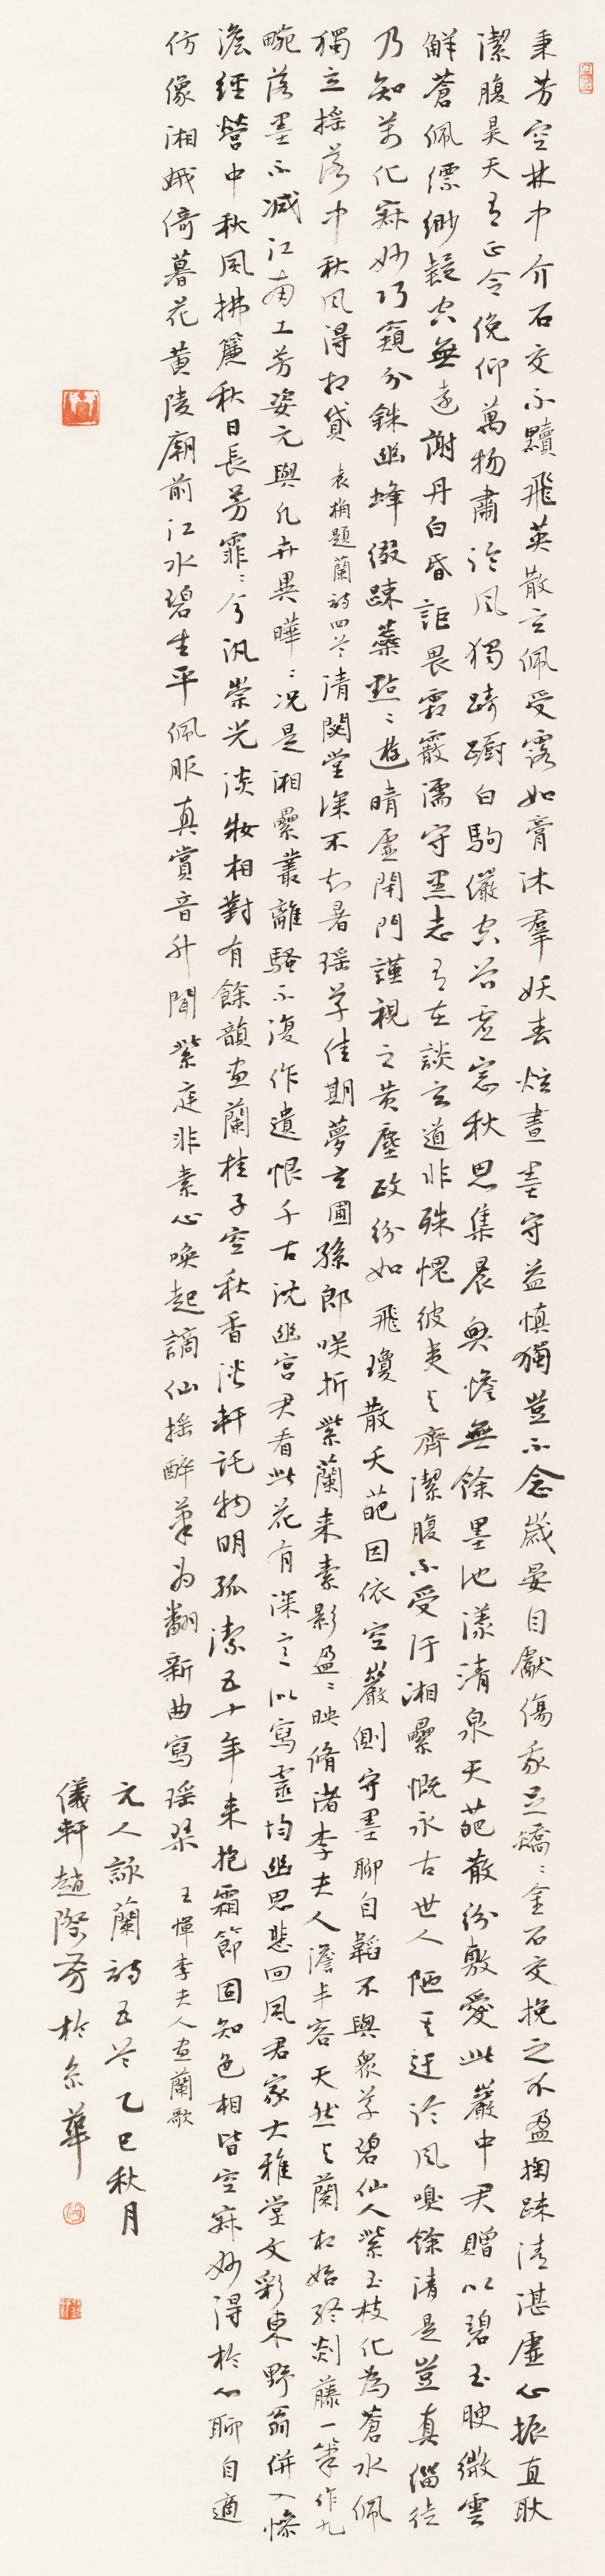 秉芳空林中介石交不黷飛英散玄佩受露如膏沐羣妖春炫晝墨守益慎獨豈不念歲晏自獻傷我足矯矯金石交挽之不盈掬踈清湛虛心振直耿
潔腹昊天有正令俛仰萬物肅泠風獨踌躕白駒儼空谷虛窓秋思集晨興憺無餘墨池漾清泉天葩散紛敷愛此巖中君贈以碧玉腴微雲
鮮蒼佩縹緲疑空無遠謝丹白昏詎畏霜霰濡守黑志有在談玄道非殊愧彼夷與齊潔腹不受汙湘纍慨永古世人陋其迂泠風嗅餘清是豈真緇徒
乃知萬化寐妙巧窺分銖幽蜂綴踈蘂點點遊晴虛閉門謹視之黄塵政紛如飛瓊散天葩因依空巖側守墨聊自韜不與衆草碧仙人紫玉枝化為蒼水佩
獨立摇落中秋風得相貸 袁桷題蘭詩四首 清閟堂深不知暑瑶草佳期夢玄圃孫郎咲折紫蘭来素影盈盈映脩渚李夫人澹丰容天然与蘭相始終剡藤一筆作九
畹落墨不減江南工芳姿元與凡卉異曄曄况是湘纍叢離騷不復作遺恨千古沈幽宫君看此花有深意似寫靈均幽思悲回風君家大雅堂文彩東野翁併入慘
澹經營中秋風拂簾秋日長芳霏霏兮汎崇光淡妝相對有餘韻畫蘭桂子空秋香澹軒託物明孤潔五十年来抱霜節固知色相皆空寐妙得於心聊自適
仿像湘娥倚暮花黄陵廟前江水碧生平佩服真賞音升聞紫庭非素心喚起謫仙摇醉筆为翻新曲寫瑶琹 王惲李夫人畫蘭歌
元人詠蘭詩五首乙巳秋月
儀軒趙際芳於京華